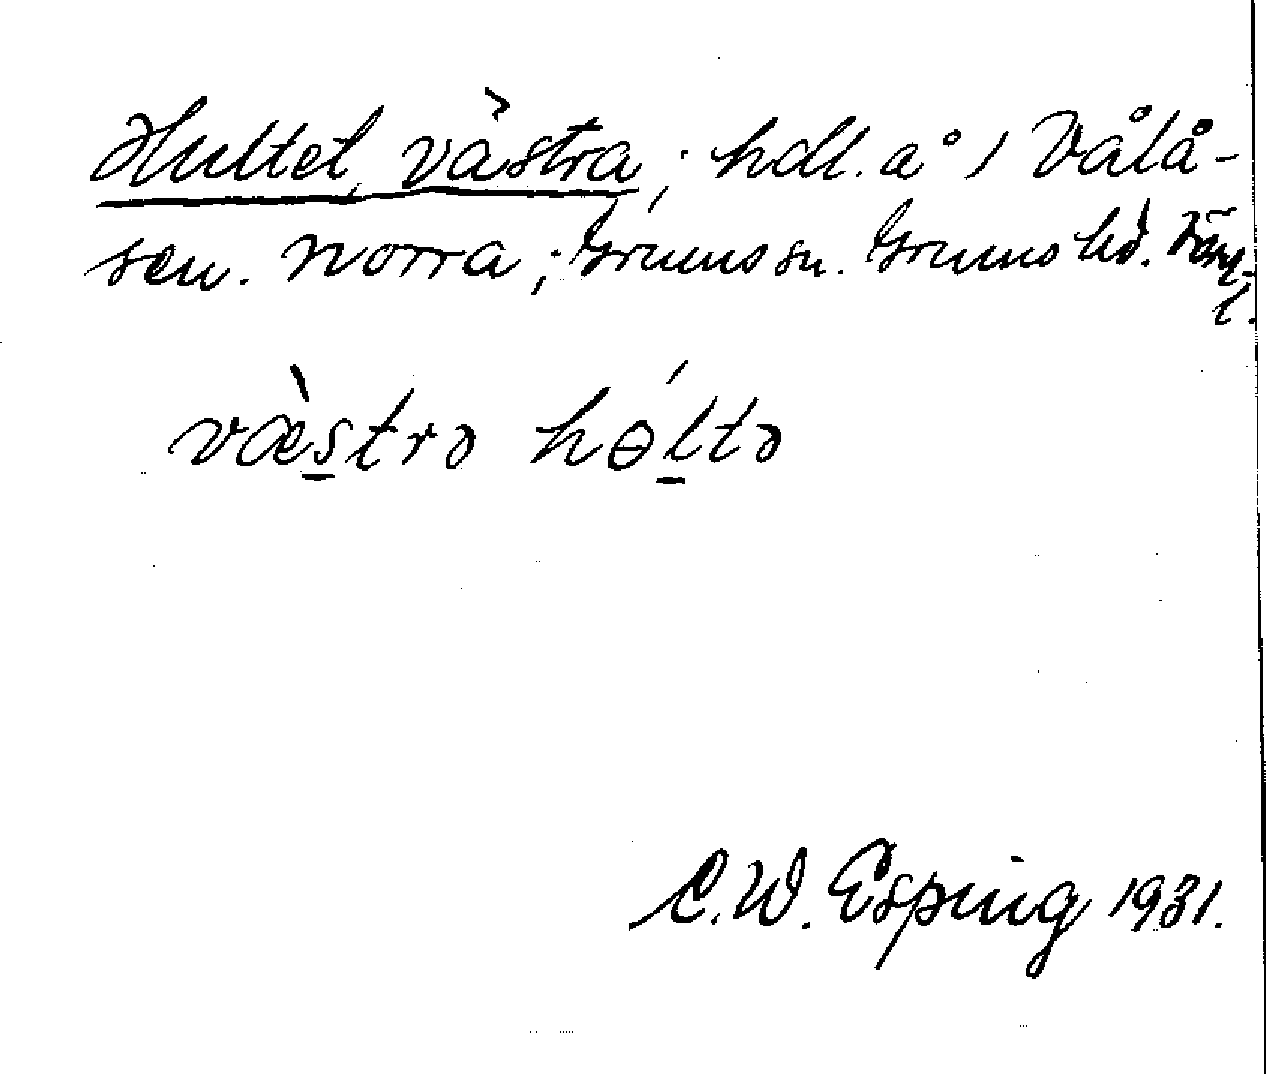 Hultet, västra; hdl. å 1 Vålå-
sen. norra; Grums sn. Grums hd. Värml-
l.
væ̀strə hɵ́ltə
C. W. Esping 1931.